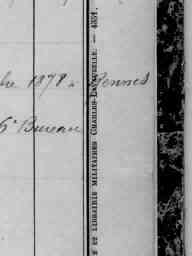 bre 1878 a Rennes
6e Bureau
E ET LIBRAIRIE MILITAIRES CHARLES-LAVAUZELLE. — 4351.